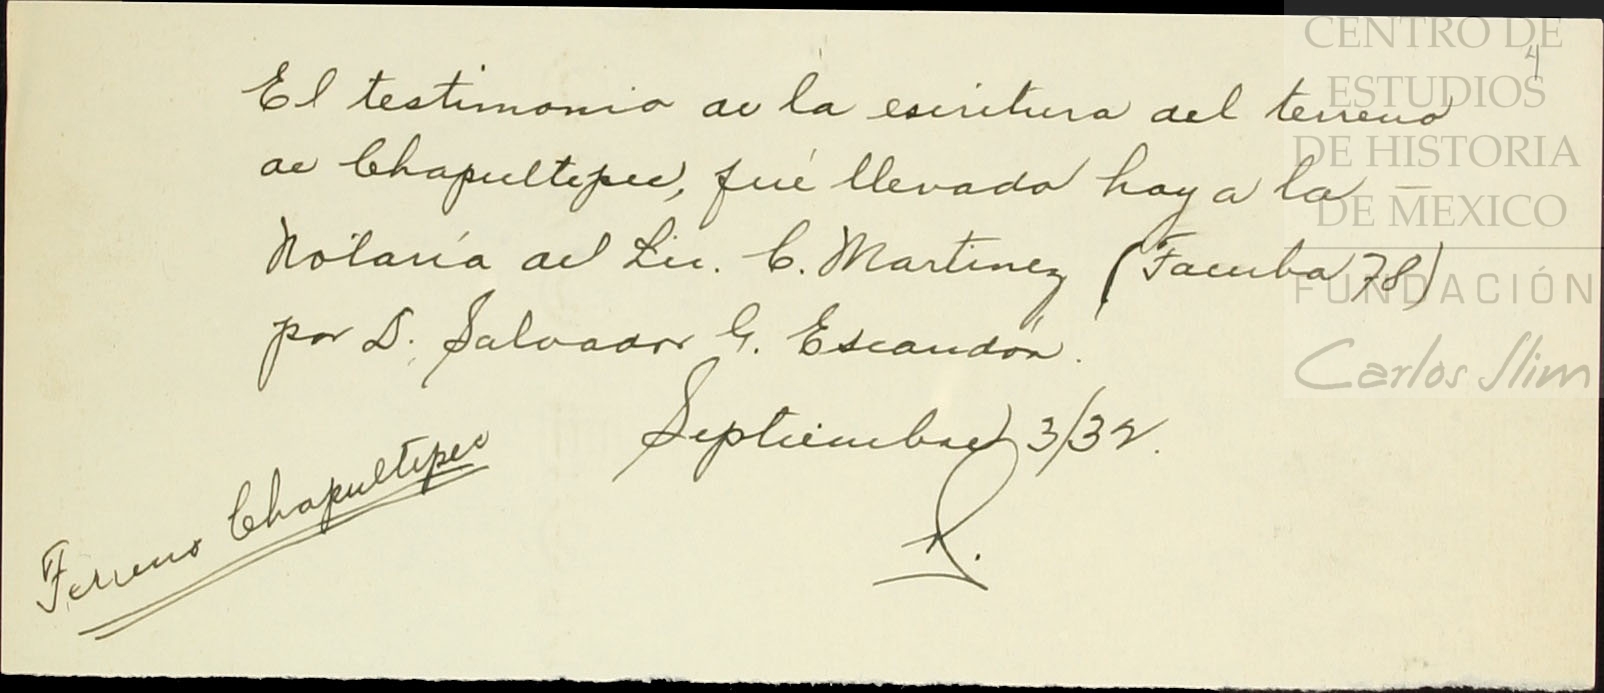 CENTRO DE
ESTUDIOS
DE HISTORIA
DE MEXICO
FUNDACIÓN
Carlos Slim
4
El testimonio de la escritura del terreno
de Chapultepec, fué llevado hoy a la
Notaría del Lic. C. Martinez (Tacuba 78)
por D. Salvador G. Escandón.
Septiembre 3/32.
Terreno Chapultepec